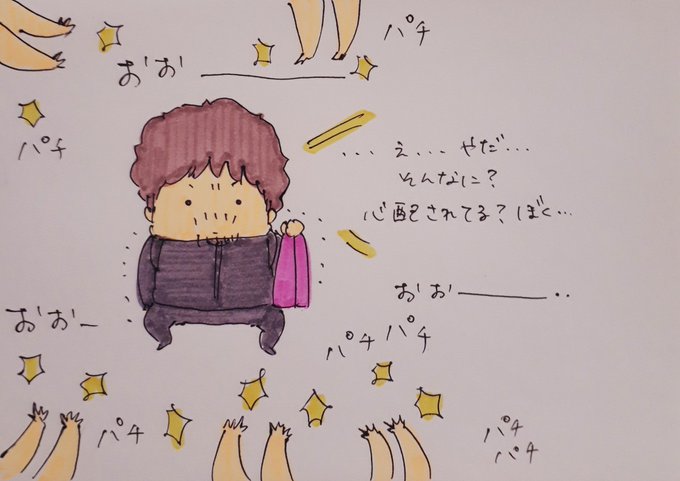 パチ
おお――――
パチ
...え...やだ...
そんなに?
心配されてる?ぼく...
おお―――..
おおー
パチパチ
パチ
パチ
パチ